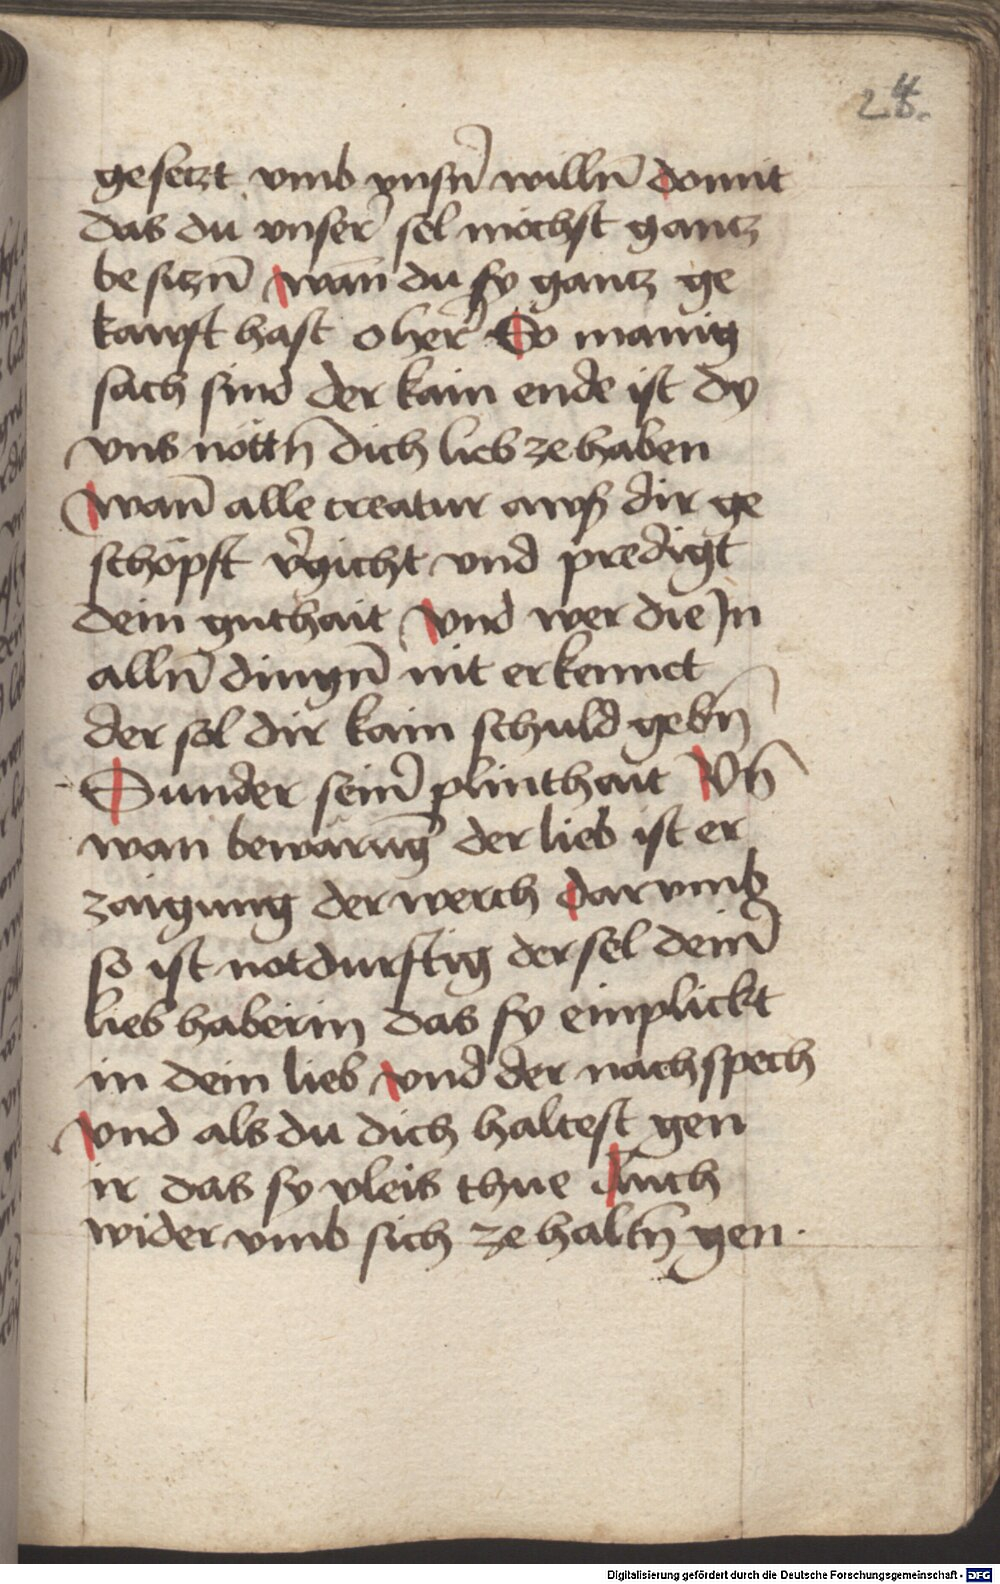 24.
gesetzt vmb vnsn̄ willn̄ domit
das du vnser̄ sel möchst gantz
besitzn̄ wan̄ du sy gantz ge
kawft hast o her̄ So manig
sach sind der kain ende ist dy
vns nöttn̄ dich lieb ze haben
wan̄ alle creatur awß dir ge
schöpft v̄gicht vnd predigt
dein guthait vnd wer die Jn
alln̄ dingn̄ nit erkennet
der sol dir kain schuld gebn̄
Sunder sein̄ plinthait Vn̄
wan bewärūg der lieb ist er
zaigung der werch darvmb
so ist notdurftig der sel dein̄
liebhaberin das sy einplickt
in dein lieb vnd der nachspech
vnd als du dich haltest gen
ir das sy vleis thue Auch
wider vmb sich ze haltn̄ gen.
Digitalisierung gefördert durch die Deutsche Forschungsgemeinschaft - DFG